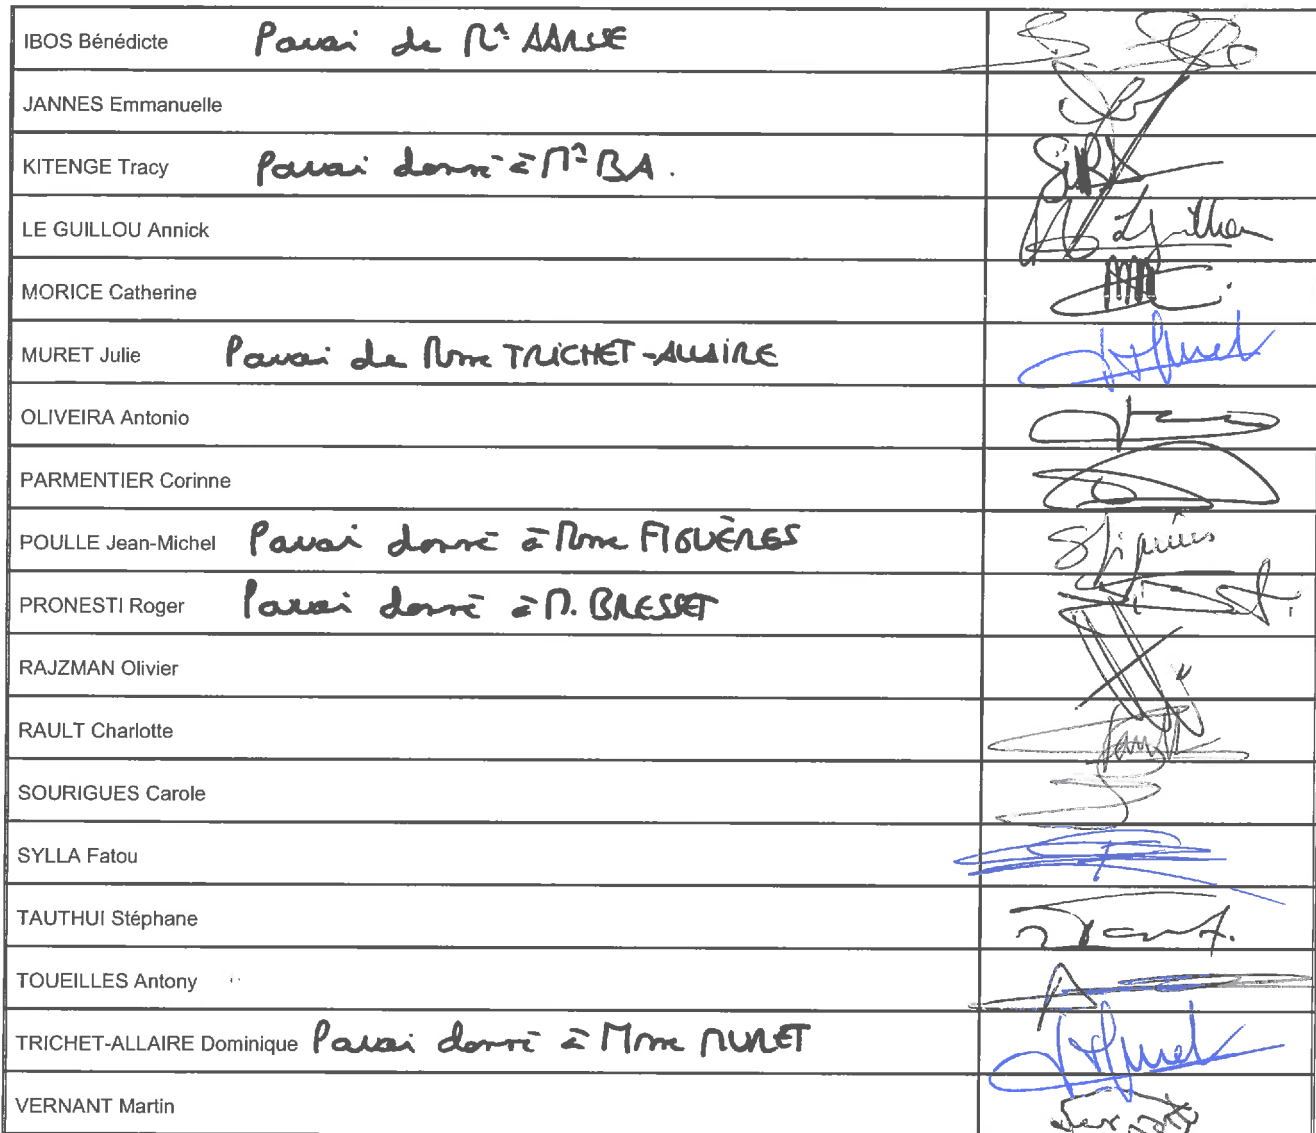 IBOS Bénédicte Pouvoir de
JANNES Emmanuelle
KITENGE Tracy Pouvoir donné à BA.
LE GUILLOU Annick
MORICE Catherine
MURET Julie Pouvoir de Mme TRICHET-ALLAIRE
OLIVEIRA Antonio
PARMENTIER Corinne
POULLE Jean-Michel Pouvoir donné à Mme FIGUÈRES
PRONESTI Roger Pouvoir donné à M. BRESSET
RAJZMAN Olivier
RAULT Charlotte
SOURIGUES Carole
SYLLA Fatou
TAUTHUI Stéphane
TOUEILLES Antony
TRICHET-ALLAIRE Dominique Pouvoir donné à Mme MURET
VERNANT Martin